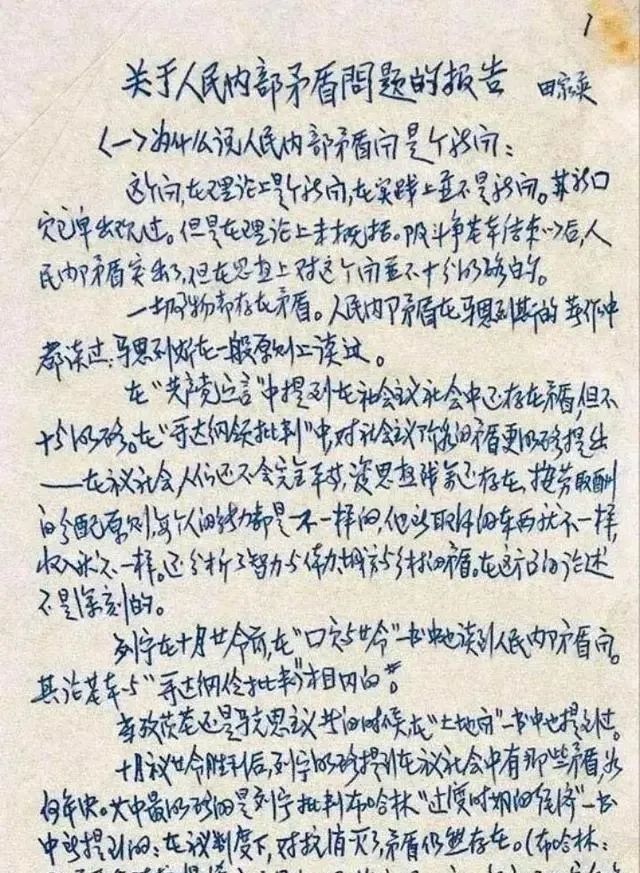 1
关于人民内部矛盾問題的报告 田家英
〈一〉为什么说人民内部矛盾问是个新问:
这个问,在理论上是个新问,在实践上並不是新问。其新口
它早出现过。但是在理论上未概括。阶斗争基本结束以后,人
民内部矛盾突出了,但在思想上对这个问並不十分明确的。
一切事物都存在矛盾。人民内部矛盾在马恩列斯的著作中
都谈过,马恩列斯在一般原则上谈过。
在“共产党宣言”中提到在社会主议社会中还存在矛盾,但不
十分明确。在“哥达纲领批判”中,对社会主议内部的矛盾更明确提出
——在议社会人们还不会完全平等,资思想残余还存在,按劳取酬
的分配原则,每个人的能力都是不一样的,他所取得的东西就不一样,
收入就不一样。还分析了智力与体力,城市与乡村的矛盾。在这方面的论述
不是深刻的。
列宁在十月革命前,在“口家与革命”一书中也谈到人民内部矛盾问。
其论基本与“哥达纲令批判”相同的。
普列汉诺夫还是马克思主议者的时候在一书中也提到过。
十月议革命胜利后,列宁明确提到在议社会中有那些矛盾,
何解决。其中最明确的是列宁批判布哈林“过度时期的经济”一书
中所提到的:在议制度下,对抗消灭了,矛盾仍然存在。(布哈林: